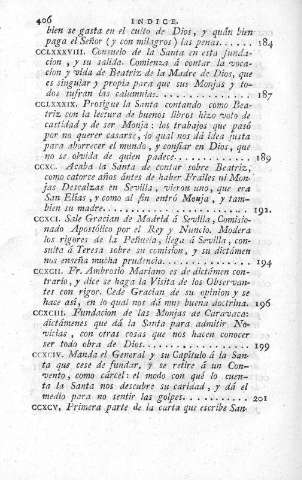 406 INDICE.
bien se gasta en el culto de Dios, y quán bien
paga el Señor (y con milagros) las penas...... 184
CCLXXXVIII. Consuelo de la Santa en esta funda-
cion, y su salida. Comienza á contar la voca-
cion y vida de Beatriz de la Madre de Dios, que
es singular y propia para que sus Monjas y to-
dos sufran las calumnias.................. 187
CCLXXXIX. Prosigue la Santa contando como Bea-
triz con la lectura de buenos libros hizo voto de
castidad y de ser Monja: los trabajos que pasó
por no querer casarse, lo qual nos dá idea justa
para aborrecer el mundo, y confiar en Dios, que
no se olvida de quien padece............... 189
CCXC. Acaba la Santa de contar sobre Beatriz,
como catorce años ántes de haber Frailes ni Mon-
jas Descalzas en Sevilla, vieron uno, que era
San Elías, y como al fin entró Monja, y tam-
bien su madre............................ 192.
CCXCI. Sale Gracian de Madrid á Sevilla, Comisio-
nado Apostólico por el Rey y Nuncio. Modera
los rigores de la Peñuela, llega á Sevilla, con-
sulta á Teresa sobre su comision, y su dictámen
nos enseña mucha prudencia................ 194
CCXCII. Fr. Ambrosio Mariano es de dictámen con-
trario, y dice se haga la Visita de los Observan-
tes con rigor. Cede Gracian de su opinion y se
hace asi, en lo qual nos dá muy buena doctrina. 196
CCXCIII. Fundacion de las Monjas de Caravaca:
dictámenes que dá la Santa para admitir No-
vicias, con otras cosas que nos hacen conocer
ser todo obra de Dios..................... 199
CCXCIV. Manda el General y su Capítulo á la San-
ta que cese de fundar, y se retire á un Con-
vento, como cárcel: el modo con qué lo cuen-
ta la Santa nos descubre su caridad, y dá el
medio para no sentir las golpes............ 201
CCXCV. Primera parte de la carta que escribe San-